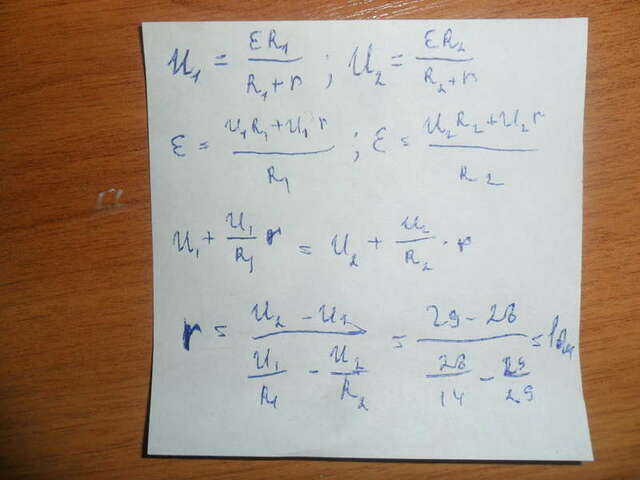 U₁ = εR₁/(R₁+r) ; U₂ = εR₂/(R₂+r)
ε = (U₁R₁+U₁r)/R₁ ; ε = (U₂R₂+U₂r)/R₂
U₁ + U₁/R₁ r = U₂ + U₂/R₂ · r
r = (U₂ - U₁)/(U₁/R₁ - U₂/R₂) = (29 - 28)/(28/14 - 29/29) = 1 Ом